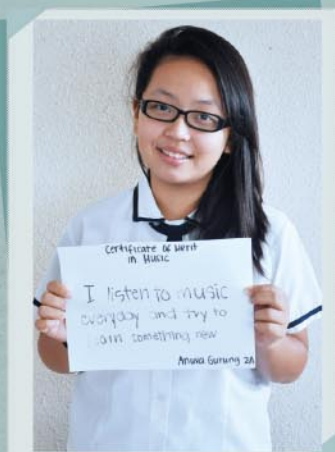 Certificate of Merit
in Music
I listen to music
everyday and try to
learn something new
Gurung 2A